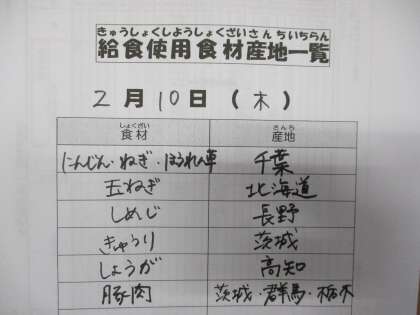 きゅうしょくしようしょくざいさんちいちらん
給食使用食材産地一覧
2月10日(木)
しょくざい さんち
食材 産地
にんじん・ねぎ・ほうれん草 千葉
玉ねぎ 北海道
しめじ 長野
きゅうり 茨城
しょうが 高知
豚肉 茨城・群馬・栃木